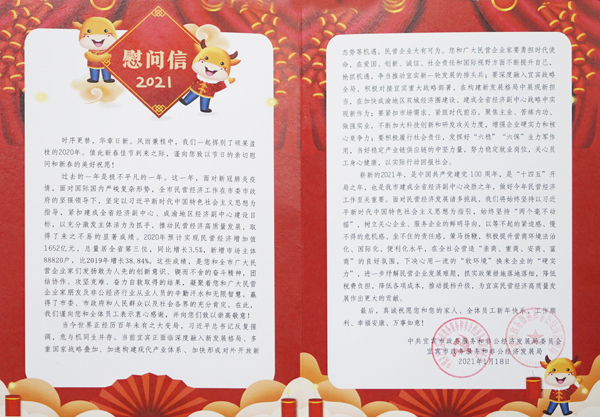 慰问信
2021
时序更替，华章日新。风雨兼程中，我们一起挥别了硕果盈
枝的2020年。值此新春佳节到来之际，谨向您致以节日的亲切慰
问和新春的美好祝愿！
过去的一年是极不平凡的一年。这一年，面对新冠肺炎疫
情，面对国际国内严峻复杂形势，全市民营经济工作在市委市政
府的坚强领导下，坚定以习近平新时代中国特色社会主义思想为
指导，紧扣建成全省经济副中心、成渝地区经济副中心建设目
标，以充分激发主体活力为抓手，推动民营经济高质量发展，取
得了来之不易的显著成绩。2020年预计实现民营经济增加值
1652亿元，总量居全省第三位，同比增长3.5%，新增市场主体
88820户，比2019年增长38.84%。这些成绩，是您和全市广大民
营企业家们发扬敢为人先的创新意识、锲而不舍的奋斗精神，团
结协作、攻坚克难、奋力自救取得的结果，凝聚着您和广大民营
企业家朋友及非公经济行业从业人员的辛勤汗水和无限智慧，赢
得了市委、市政府和人民群众以及社会各界的充分肯定。在此，
我们谨向您和全体员工表示衷心感谢，并向您们致以崇高敬意！
当今世界正经历百年未有之大变局，习近平总书记反复强
调，危与机同生并存。当前宜宾正面临深度融入新发展格局、多
重国家战略叠加、加速构建现代产业体系、加快形成对外开放新
态势等机遇，民营企业大有可为。您和广大民营企业家要勇担时代使
命，在爱国、创新、诚信、社会责任和国际视野方面不断提升自己，
抢抓机遇，争当推动宜宾新一轮发展的排头兵；要深度融入宜宾战略
全局，积极对接宜宾重大战略部署，在构建新发展格局中展现新担
当，在加快成渝地区双城经济圈建设、建成全省经济副中心战略中实
现新作为；要紧扣市场需求，紧抓时代前沿，聚焦主业、苦练内功、
做强实业，不断加大科技创新和研发攻关力度，增强企业硬实力和核
心竞争力；要积极履行社会责任，发挥好“六稳”“六保”生力军作
用，当好稳定产业链供应链的中坚力量，努力稳定就业岗位，关心员
工身心健康，以实际行动回报社会。
崭新的2021年，是中国共产党建党100周年，是“十四五”开
局之年，也是我市建成全省经济副中心决胜之年，做好今年民营经济
工作至关重要。面对民营经济发展诸多挑战，我们将始终坚持以习近
平新时代中国特色社会主义思想为指引，始终坚持“两个毫不动
摇”，树立关心企业、服务企业的鲜明导向，以等不起的紧迫感、慢
不得的危机感、坐不住的责任感，策马扬鞭，积极提升营商环境法治
化、国际化、便利化水平，在全社会营造“亲商、重商、安商、富
商”的良好氛围，下决心用一流的“软环境”换来企业的“硬实
力”，进一步纾解民营企业发展难题，抓实政策措施落地落细，降低
税费负担，降低各项成本，推动提档升级，为宜宾民营经济高质量发
展作出更大的贡献。
最后，真诚祝愿您和您的家人、全体员工新年快乐，工作顺
利、幸福安康、万事如意！
中共宜宾市政务服务和非公经济发展局委员会
宜宾市政务服务和非公经济发展局
2021年1月18日